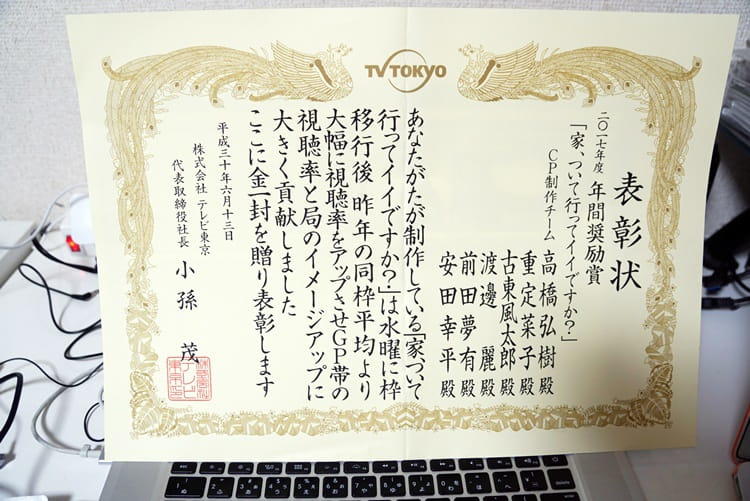 TV TOKYO
表彰状
二〇一七年度 年間奨励賞
「家、ついて行ってイイですか？」
CP制作チーム 高橋弘樹殿
重定菜子殿
古東風太郎殿
渡邊麗殿
前田夢有殿
安田幸平殿
あなたがたが制作している「家、ついて
行ってイイですか？」は水曜に枠
移行後 昨年の同枠平均より
大幅に視聴率をアップさせGP帯の
視聴率と局のイメージアップに
大きく貢献しました
ここに金一封を贈り表彰します
平成三十年六月十三日
株式会社 テレビ東京
代表取締役社長 小孫 茂